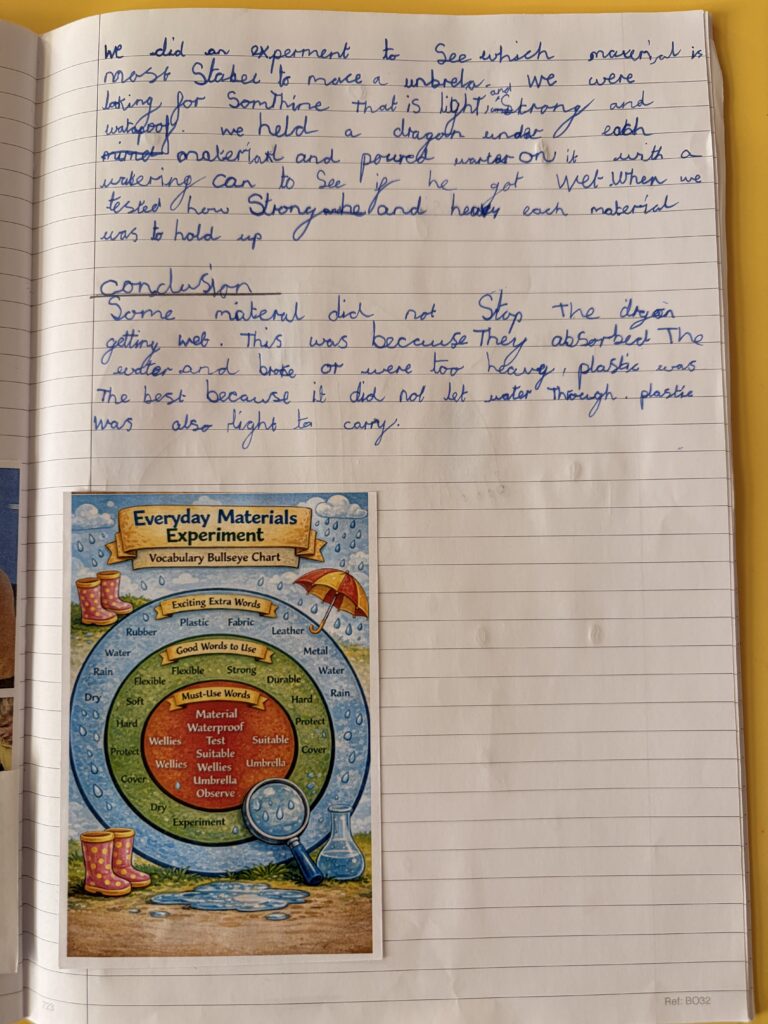 we did an experment to See which material is
most Stabel to mace a unbrela. We were
loking for Somthine that is light, and Strong and
watepoof. we held a dragon under each
material and poured warter on it with a
watering can to See if he got wet. When we
tested how Strong and heavy each material
was to hold up
conclusion
Some materal did not Stop The dragon
getting wet. This was because They absorbed The
water and broke or were too heavy, plastic was
The best because it did not let water Through. plastic
was also light to carry.
Everyday Materials
Experiment
Vocabulary Bullseye Chart
Exciting Extra Words
Rubber Plastic Fabric Leather
Water Metal
Rain Water
Dry Rain
Good Words to Use
Flexible Flexible Strong Durable
Soft Hard
Hard Protect
Protect Cover
Cover
Dry
Experiment
Must-Use Words
Material
Waterproof
Wellies Test Suitable
Suitable
Wellies Wellies Umbrella
Umbrella
Observe
723
Ref: BO32